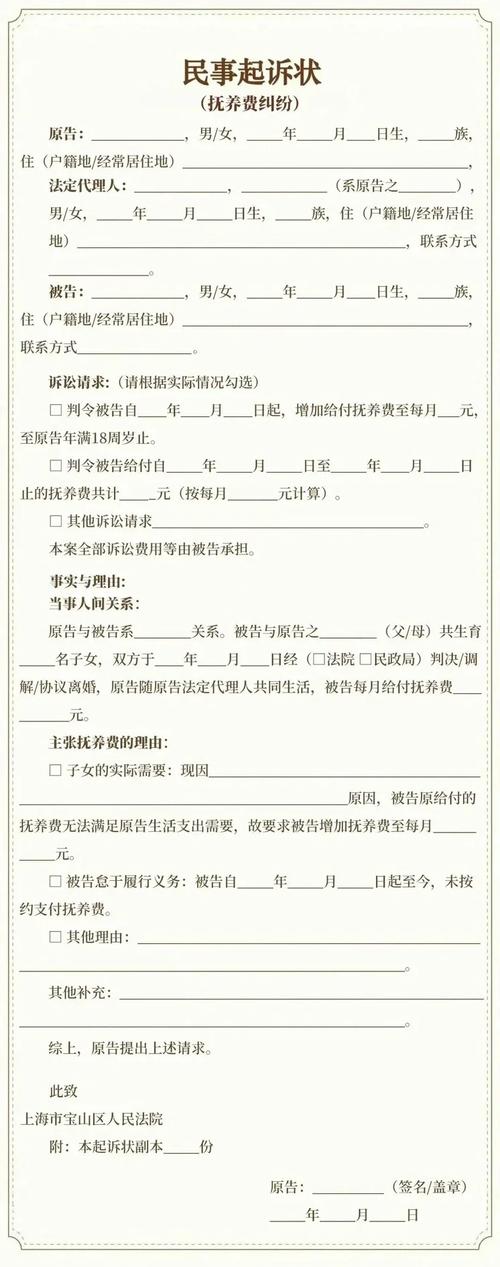 民事起诉状
（抚养费纠纷）
原告：____________，男/女，_____年_____月____日生，_____族，
住（户籍地/经常居住地）________________________________________，
法定代理人：_____________，____________（系原告之________），
男/女，_____年_____月_____日生，_____族，住（户籍地/经常居住
地）______________________________________________，联系方式
______________。
被告：____________，男/女，_____年_____月____日生，_____族，
住（户籍地/经常居住地）________________________________________，
联系方式________________。
诉讼请求：（请根据实际情况勾选）
□ 判令被告自____年____月____日起，增加给付抚养费至每月___元，
至原告年满18周岁止。
□ 判令被告给付自_____年_____月_____日至_____年____月_____日
止的抚养费共计_____元（按每月_______元计算）。
□ 其他诉讼请求______________________________________。
本案全部诉讼费用等由被告承担。
事实与理由：
当事人间关系：
原告与被告系________关系。被告与原告之________（父/母）共生育
_____名子女，双方于____年____月____日经（□法院 □民政局）判决/调
解/协议离婚，原告随原告法定代理人共同生活，被告每月给付抚养费____
_______元。
主张抚养费的理由：
□ 子女的实际需要：现因______________________________________
______________________________________________原因，被告原给付的
抚养费无法满足原告生活支出需要，故要求被告增加抚养费至每月______
_____元。
□ 被告怠于履行义务：被告自_____年_____月_____日起至今，未按
约支付抚养费。
□ 其他理由：________________________________________________
______________________________________________________。
其他补充：___________________________________________________
______________________________________________________。
综上，原告提出上述请求。
此致
上海市宝山区人民法院
附：本起诉状副本_____份
原告：__________（签名/盖章）
_____年_____月_____日